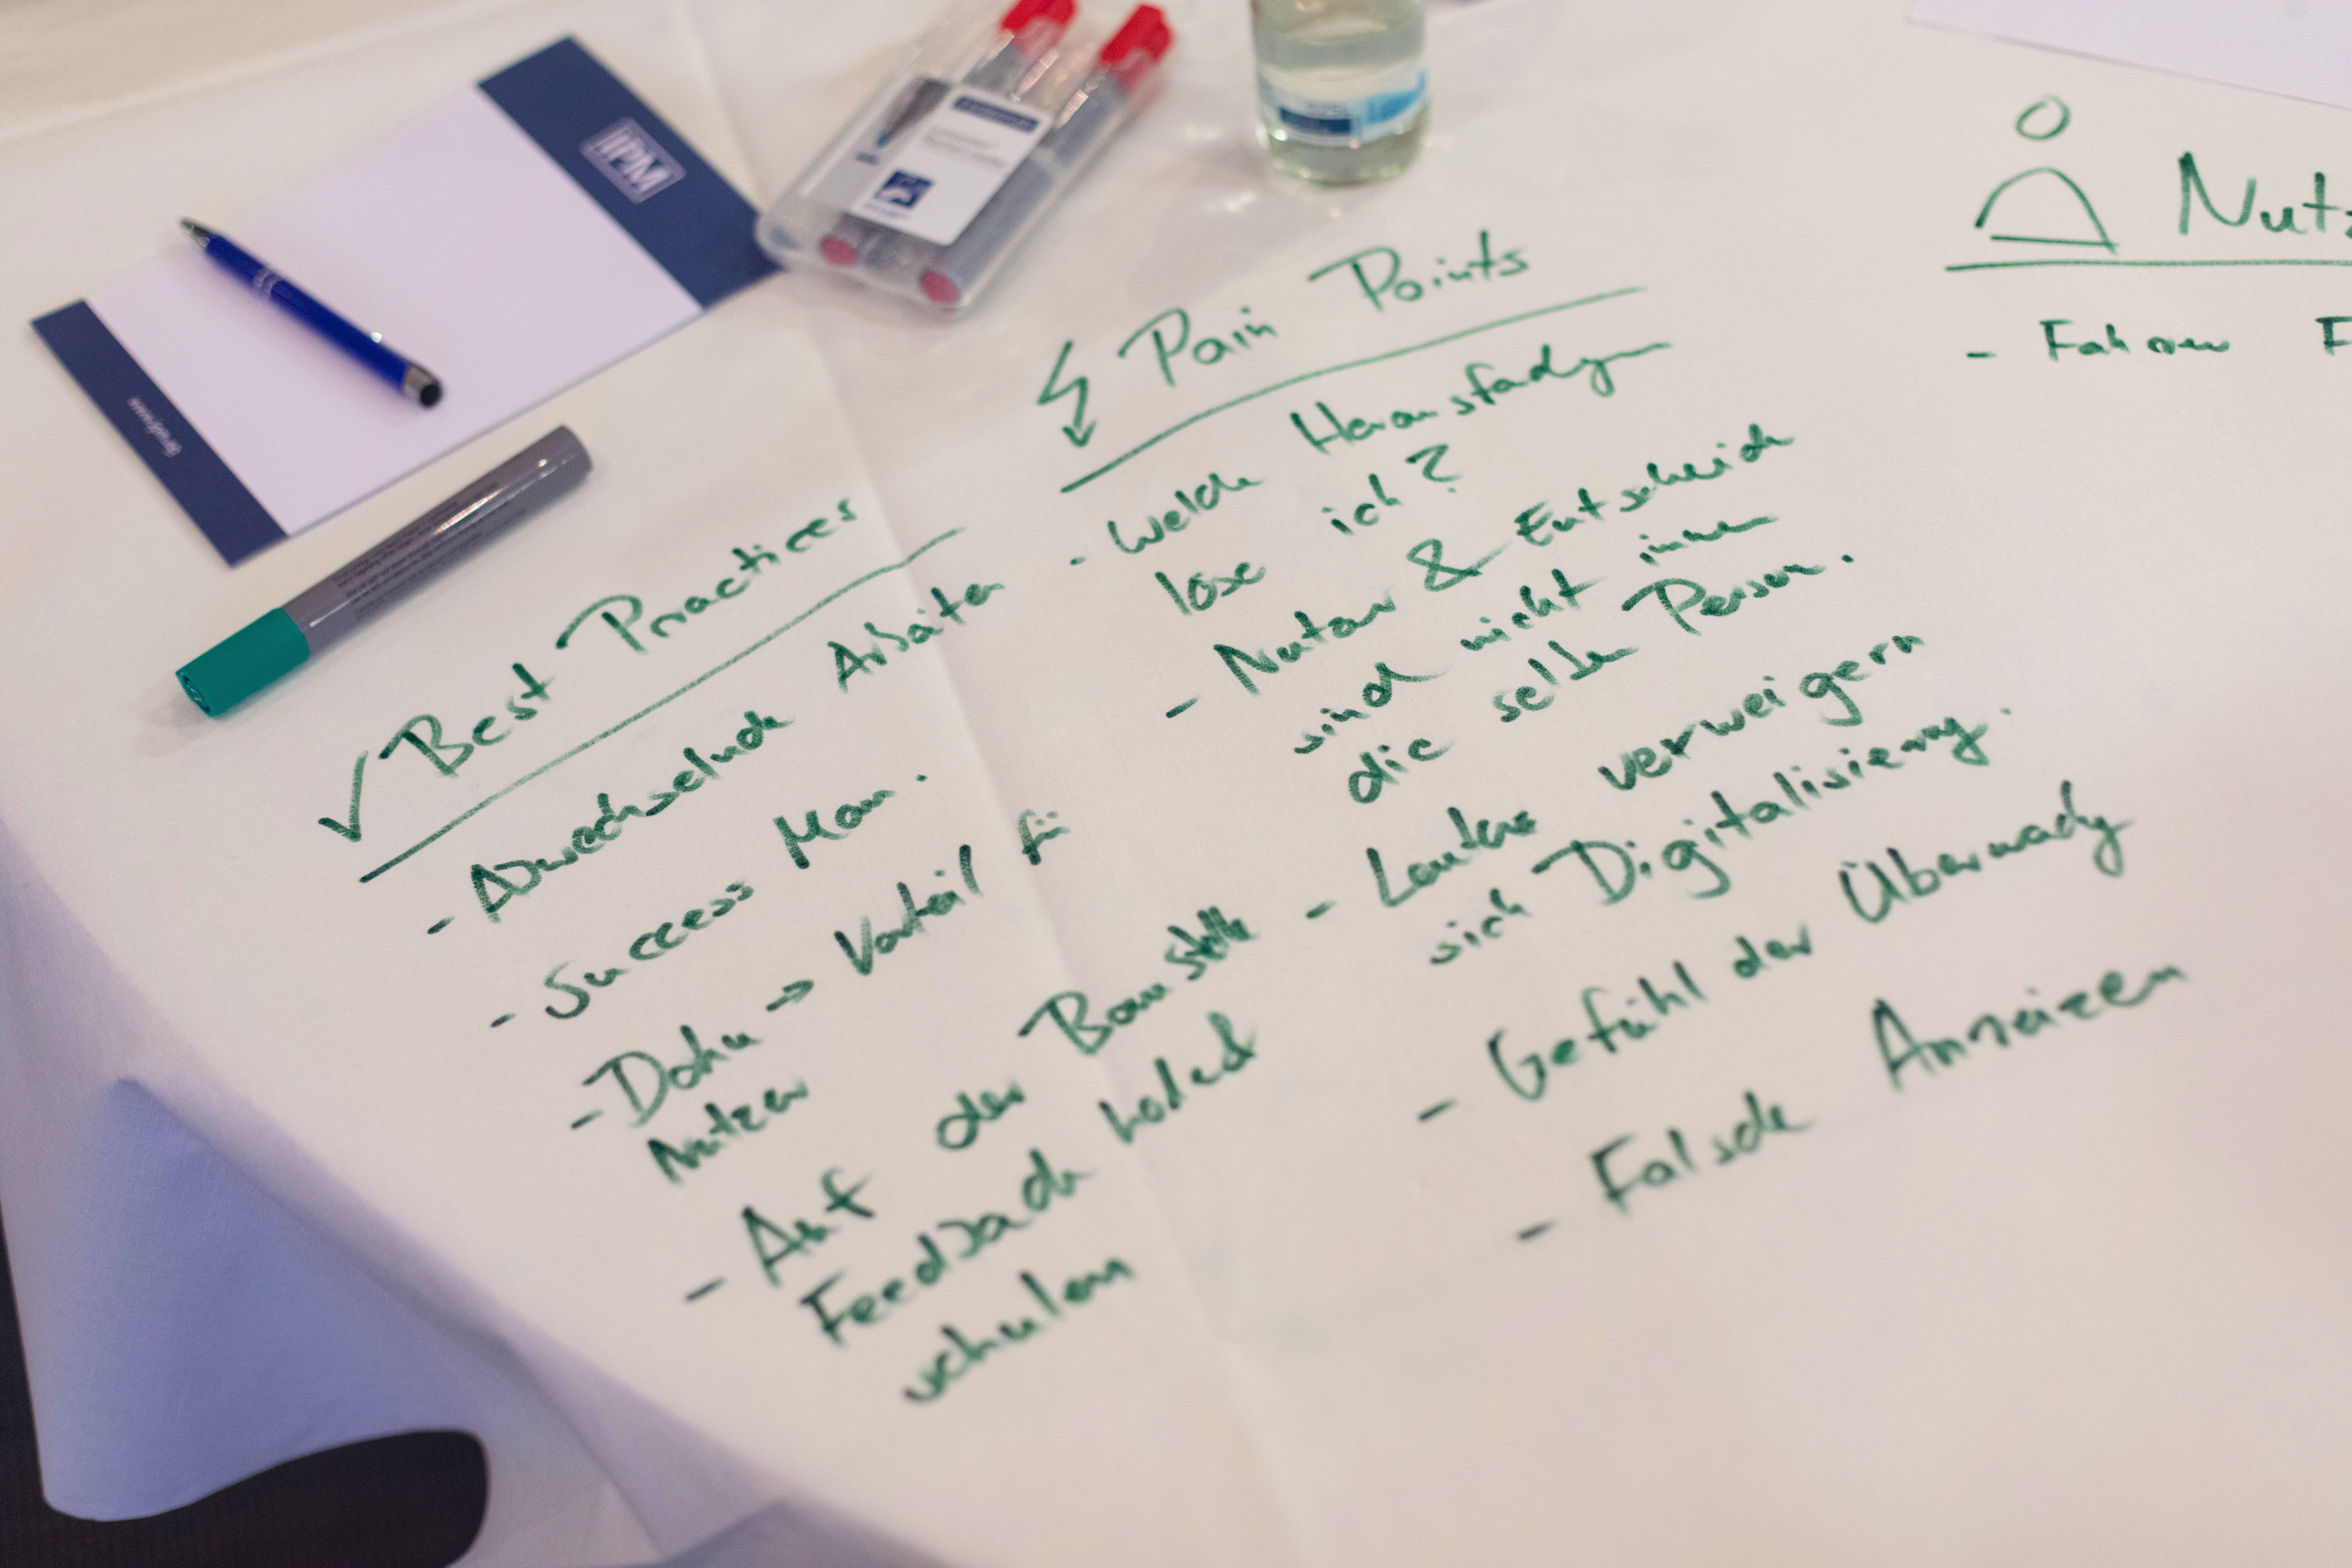 IPM
✓ Best Practices
- Abwechselnde Arbeiten
- Success Man.
- Doku → Vorteil für
Nutzer
- Auf der Baustelle
Feedback holed
schulen
Pain Points
- Welche Herausfadgn
löse ich?
- Nutzer & Entscheid
innen
sind nicht
die selbe Person.
- verweigern
sich Digitalisierung.
- Gefühl der Überwachg
- Falsche Anreizen
Nutz
-